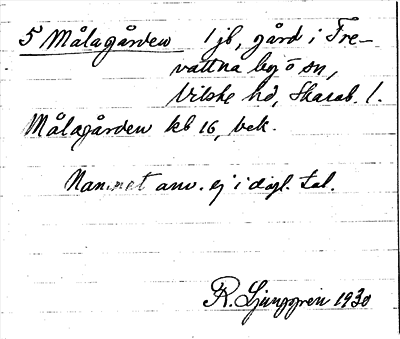 5 Målagården 1 jb, gård i Tre-
vattna by o sn,
Vilske hd, Skarab. l.
Målagården kb 16, bek.
Namnet anv. ej i dagl. tal.
R. Ljunggren 1930